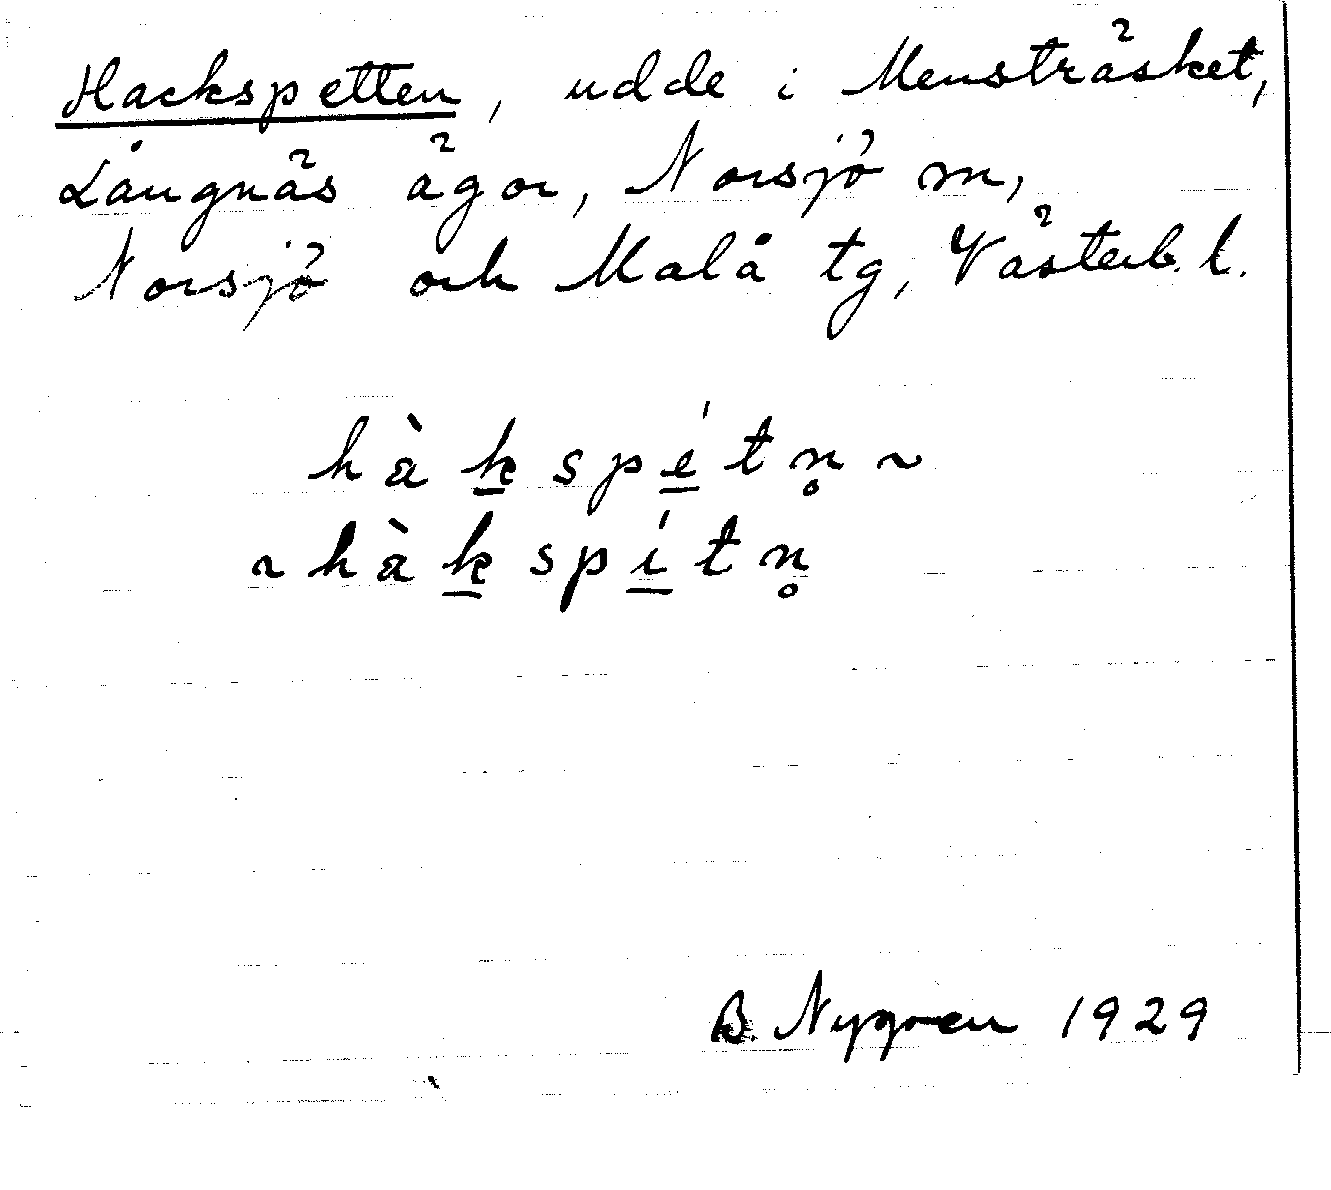 Hackspetten, udde i Mensträsket,
Långnäs ägor, Norsjö sn,
Norsjö och Malå tg, Västerb. l.
hàk̲spé̲tn̥ ~
~ hàk̲spí̲tn̥
B. Nygren 1929